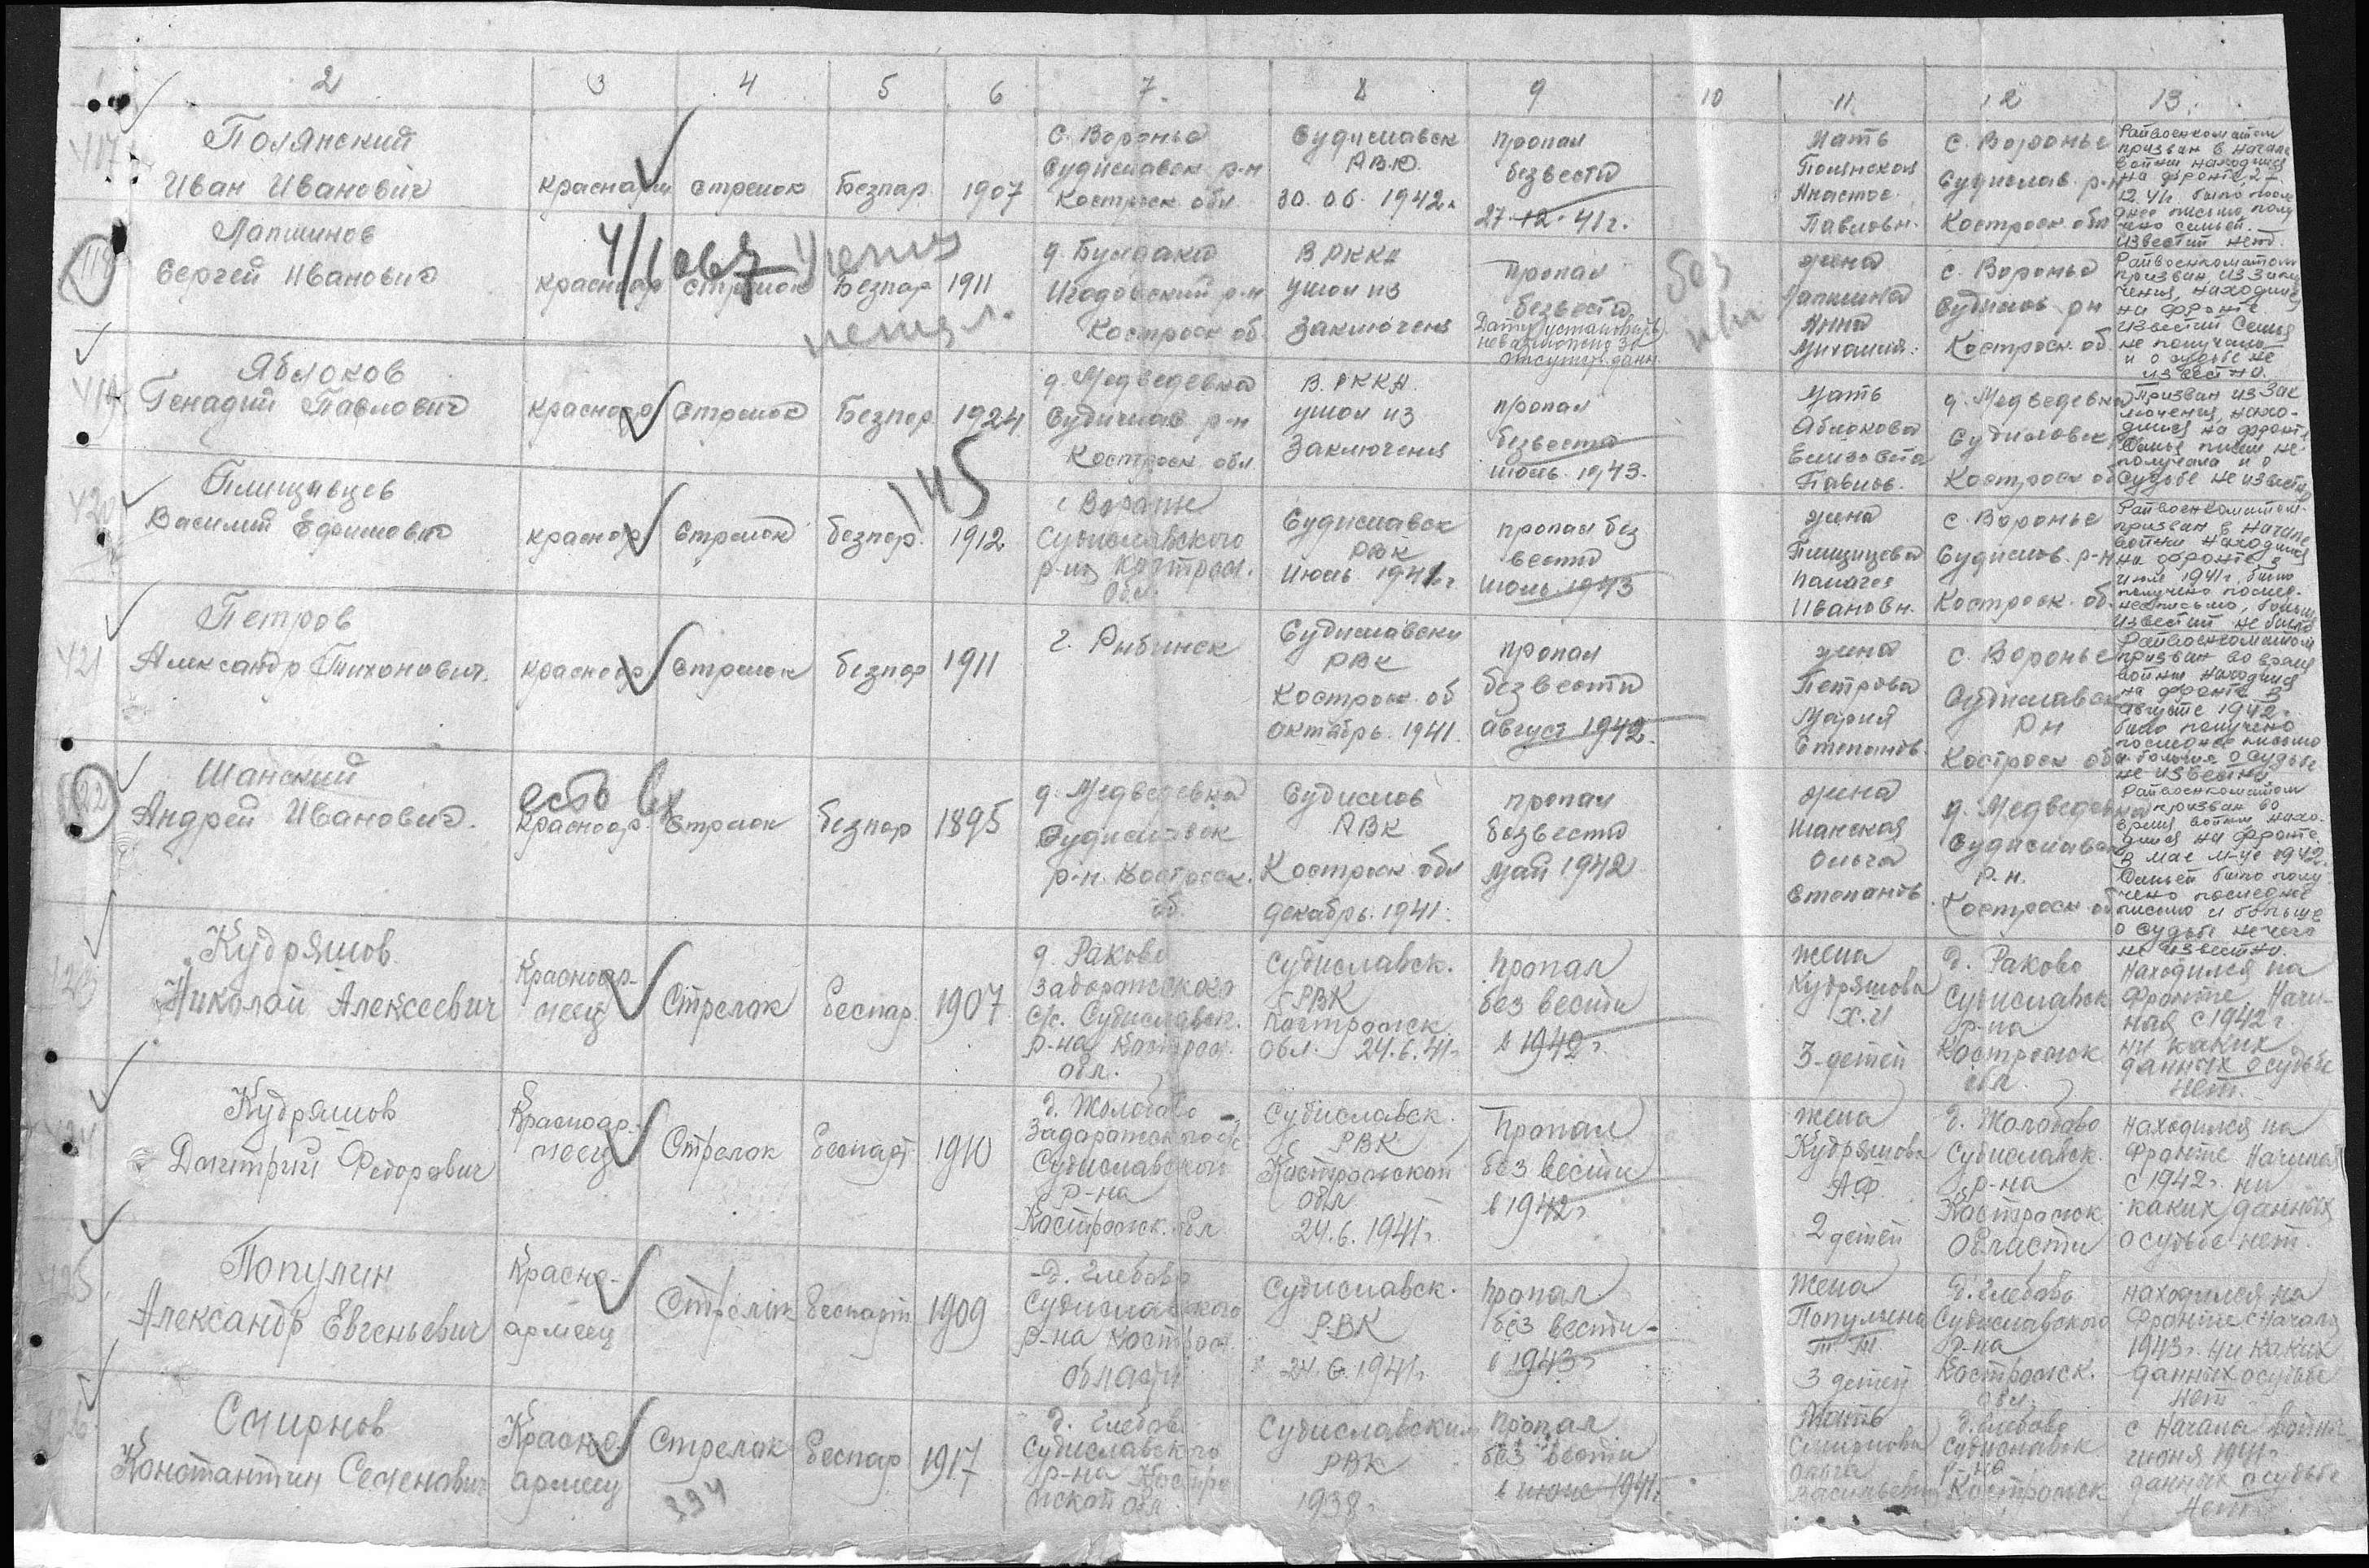 2 3 4 5 6 7. 8 9 10 11 12 13.
417
Полянский
Иван Иванович
красноарм
стрелок
Безпар.
1907
с. Воронье
Судиславск р-н
Костроск обл
Судиславск
РВК.
30.06.1942г
пропал
безвести
27.12.41г.
Мать
Полянская
Анастос.
Павловн.
с. Воронье
Судислав. р-н
Костроск обл
Райвоенкоматом
призван в начале
войны находился
на фронте, 27
12.41г. было после
днее письмо, полу
чено семьей.
известий нет.
418
Лапшинов
Сергей Иванович
красноар
стрелок
Безпар
1911
д. Бундаки
Игодовский р-н
Костроск об.
В РККА
ушол из
Заключеня
пропал
безвести
Дату установить
невозможно за
отсутст. данн.
без
жена
Лапшина
Анна
Михаил.
с. Воронье
Судислав рн
Костроск. об.
Райвоенкоматом
призван, из заклю
чения, находился
на фронте
известий Семья
не получала
и о судьбе не
известно.
419
Яблоков
Генадий Павлович
красноар
Стрелок
Безпар
1924
д. Медведевка
Судислав р-н
Костроск обл
В. РККА.
ушол из
Заключения
пропал
безвести
июль. 1943.
Мать
Яблокова
Елизовета
Павлов.
д. Медведевка
Судиславск
Костроск об
Призван из Зак
лючения, нахо-
дился на фронте
Семья писем не
получала и о
судьбе не известно
145
420
Плищивцев
Василий Ефимович
красноар
Стрелок
безпар.
1912
с Воронье
Судиславского
р-на Костром.
Обл.
Судиславск
РВК
Июль 1941г
пропал без
вести
июль 1943
жена
Плищицева
Палагея
Ивановн.
с. Воронье
Судислов. р-н
Костроск. об.
Райвоенкоматом.
призван в начале
войны находился
на фронте в
июле 1941г. было
получено послед-
нее письмо, больше
известий не было
421
Петров
Александр Тихонович.
красноар
Стрелок
безпар
1911
г. Рыбинск
Судиславски
РВК
Костроск. об
октябрь. 1941.
пропал
безвести
август 1942.
жена
Петрова
Мария
Степанов.
с. Воронье
Судиславск
Р н
Костроск об
Райвоенкоматом
призван во время
войны находился
на фронте в
августе 1942г
было получено
последнее письмо
и больше о судьбе
не известно
422
Шанский
Андрей Иванович.
есть
Красноар.
Стрелок
безпар
1895
д. Медведевка
Судиславск
р-н. Костроск.
об.
Судислов
РВК
Костроск. обл
декабрь. 1941.
пропал
безвести
май 1942
жена
Шанская
Ольга
Степанов.
д. Медведевка
Судиславск
р.н.
Костроск об
Райвоенкоматом
призван во
время войны нахо-
дился на фронте.
В мае м-це 1942.
Семьей было полу
чено последнее
письмо и больше
о судьбе нечего
не известно.
423
Кудряшов
Николай Алексеевич
Красноар-
меец
Стрелок
Беспар.
1907
д. Раково
Задоротского
с/с. Судиславск.
р-на Костром.
обл.
Судиславск.
РВК
Костромск.
обл. 24.6.41г
Пропал
без вести
в 1942г.
Жена
Кудряшова
Х.И
3-детей
д. Раково
Судиславск
р-на
Костромск
обл.
Находился на
Фронте. Начи-
ная с 1942г
ни каких
данных о судьбе
нет.
424
Кудряшов
Дмитрий Федорович
Красноар-
меец
Стрелок
Беспарт
1910
д. Жолобово
Задоротского с/с
Судиславского
р-на
Костромск. обл
Судиславск.
РВК
Костромской
обл
24.6.1941г.
Пропал
без вести
в 1942г
Жена
Кудряшова
А.Ф.
2 детей
д. Жолобово
Судиславск.
р-на
Костромск.
Области
находился на
Фронте Начиная
с 1942г. ни
каких данных
о судьбе нет.
425
Популин
Александр Евгеньевич
Красно-
армеец
Стрелок
Беспарт
1909
д. Глебово
Судиславского
р-на Костром.
области
Судиславск.
РВК
24.6.1941г.
Пропал
без вести
в 1943г
Жена
Популина
Т.Т.
3 детей
д. Глебово
Судиславского
р-на
Костромск.
обл.
находился на
Фронте с начала
1943г. ни каких
данных о судьбе
нет
426
Смирнов
Константин Семенович
Красно-
армеец
Стрелок
Беспар
1917
д. Глебово
Судиславского
р-на Костро
мской обл.
Судиславским
РВК
1938г
Пропал
без вести
в июне 1941г.
Мать
Смирнова
Ольга
Васильевна
д. Глебово
Судиславск
р-на
Костромск
с Начала войны
июня 1941г.
данных о судьбе
Нет.
394